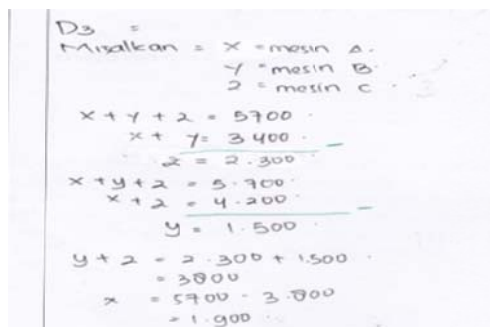 D3 =
Misalkan = x = mesin A.
y = mesin B.
z = mesin C.
x + y + z = 5700.
x + y = 3400.
z = 2.300.
x + y + z = 5.700.
x + z = 4.200
y = 1.500
y + z = 2.300 + 1.500
= 3800
x = 5700 - 3.800
= 1.900